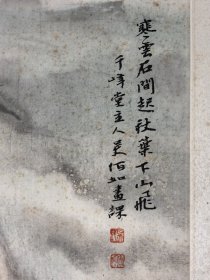 寒雲石間起秋葉下山飛
千峰堂主人吳伯如畫課